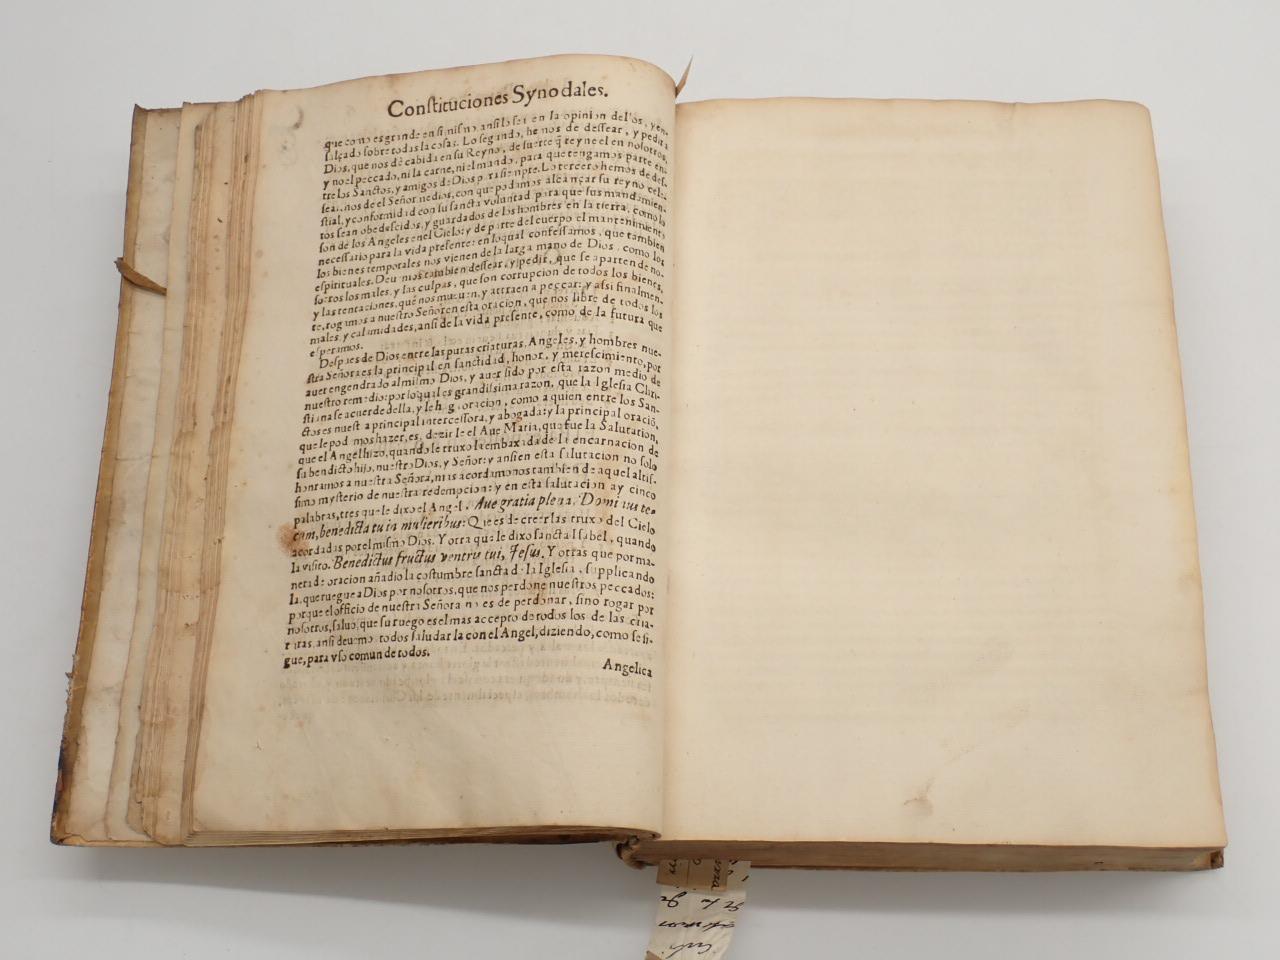 Constituciones Synodales.
que como es grande en si mismo ansi lo sea en la opinion dellos, y en-
salçado sobre todas las cosas. Lo segundo, hemos de dessear, y pedir a
Dios, que nos dè cabida en su Reyno, de suerte q̃ reyne el en nosotros,
y no el peccado, ni la carne, ni el mundo, para que tengamos parte en-
tre los Sanctos, y amigos de Dios para siempre. Lo tercero hemos de des-
seamos de el Señor medios, con que podamos alcançar su reyno cele-
stial, y conformidad con su sancta voluntad para que sus mandamien-
tos sean obedescidos, y guardados de los hombres en la tierra, como lo
son de los Angeles en el Cielo: y de parte del cuerpo el mantenimiento
necessario para la vida presente: en lo qual confessamos, que tambien
los bienes temporales nos vienen de la larga mano de Dios, como los
espirituales. Deuemos tambien dessear, y pedir, que se aparten de no-
sotros los males, y las culpas, que son corrupcion de todos los bienes,
y las tentaciones, que nos mueuen, y attraen a peccar: y assi finalmen-
te, rogamos a nuestro Señor en esta oracion, que nos libre de todos los
males, y calamidades, ansi de la vida presente, como de la futura que
esperamos.
Despues de Dios entre las puras criaturas, Angeles, y hombres nue-
stra Señora es la principal en sanctidad, honor, y merescimiento, por
auer engendrado al mismo Dios, y auer sido por esta razon medio de
nuestro remedio: por lo qual es grandissima razon, que la Iglesia Chri-
stiana se acuerde della, y le haga oracion, como a quien entre los San-
ctos es nuestra principal intercessora, y abogada: y la principal oraciõ,
que le podemos hazer, es, dezirle el Aue Maria, que fue la Salutation,
que el Angel hizo, quando le truxo la embaxada de la encarnacion de
su bendicto hijo, nuestro Dios, y Señor: y ansi en esta salutacion no solo
honramos a nuestra Señora, mas acordamonos tambien de aquel altis-
simo mysterio de nuestra redempcion: y en esta salutacion ay cinco
palabras, tres que le dixo el Angel. Aue gratia plena. Dominus te-
cum, benedicta tu in mulieribus: Que es de creer las truxo del Cielo
acordadas por el mismo Dios. Y otra que le dixo sancta Isabel, quando
la visito. Benedictus fructus ventris tui, Jesus. Y otras que por ma-
nera de oracion añadio la costumbre sancta de la Iglesia, supplicando
la, que ruegue a Dios por nosotros, que nos perdone nuestros peccados:
porque el officio de nuestra Señora no es de perdonar, sino rogar por
nosotros, saluo, que su ruego es el mas accepto de todos los de las cria-
turas, ansi deuemos todos saludar la con el Angel, diziendo, como se si-
gue, para vso comun de todos.
Angelica